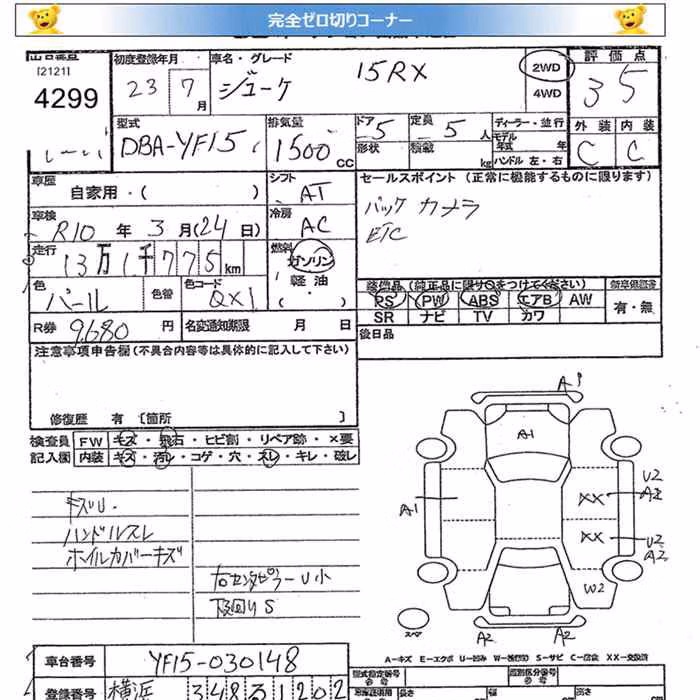 完全ゼロ切りコーナー
[2121]
4299
初度登録年月
23 7 月
車名・グレード
ジューク 15RX
2WD
4WD
評価点
3 5
外装 内装
C C
型式
DBA-YF15
排気量
1500 CC
ドア 5
形状
定員 5 人
積載 kg
ディーラー・並行
モデル年式 年
ハンドル 左・右
車歴
自家用・( )
シフト
AT
車検
R10 年 3 月(24 日)
冷房
AC
走行
13万1千775 km
燃料
ガソリン
軽油
( ・ )
色
パール
色替
色コード
QX1
R券 9,680 円 名変通知期限 月 日
セールスポイント (正常に機能するものに限ります)
バックカメラ
ETC
装備品 (純正品に限り○をつけてください)
PS PW ABS エアB AW
SR ナビ TV カワ
有・無
後日品
注意事項申告欄 (不具合内容等は具体的に記入して下さい)
修復歴 有 [箇所 ]
検査員 FW キズ・飛石・ヒビ割・リペア跡・×要
記入欄 内装 キズ・汚レ・コゲ・穴・スレ・キレ・破レ
キズU.
ハンドルスレ
ホイルカバーキズ
右センタピラーU小
下回りS
A1
A1
A1
XX
U2
A2
XX
U2
A2
W2
スペア
A2
A2
A-キズ E-エクボ U-凹み S-サビ XX-交換済
車台番号 YF15-030148
登録番号 横浜